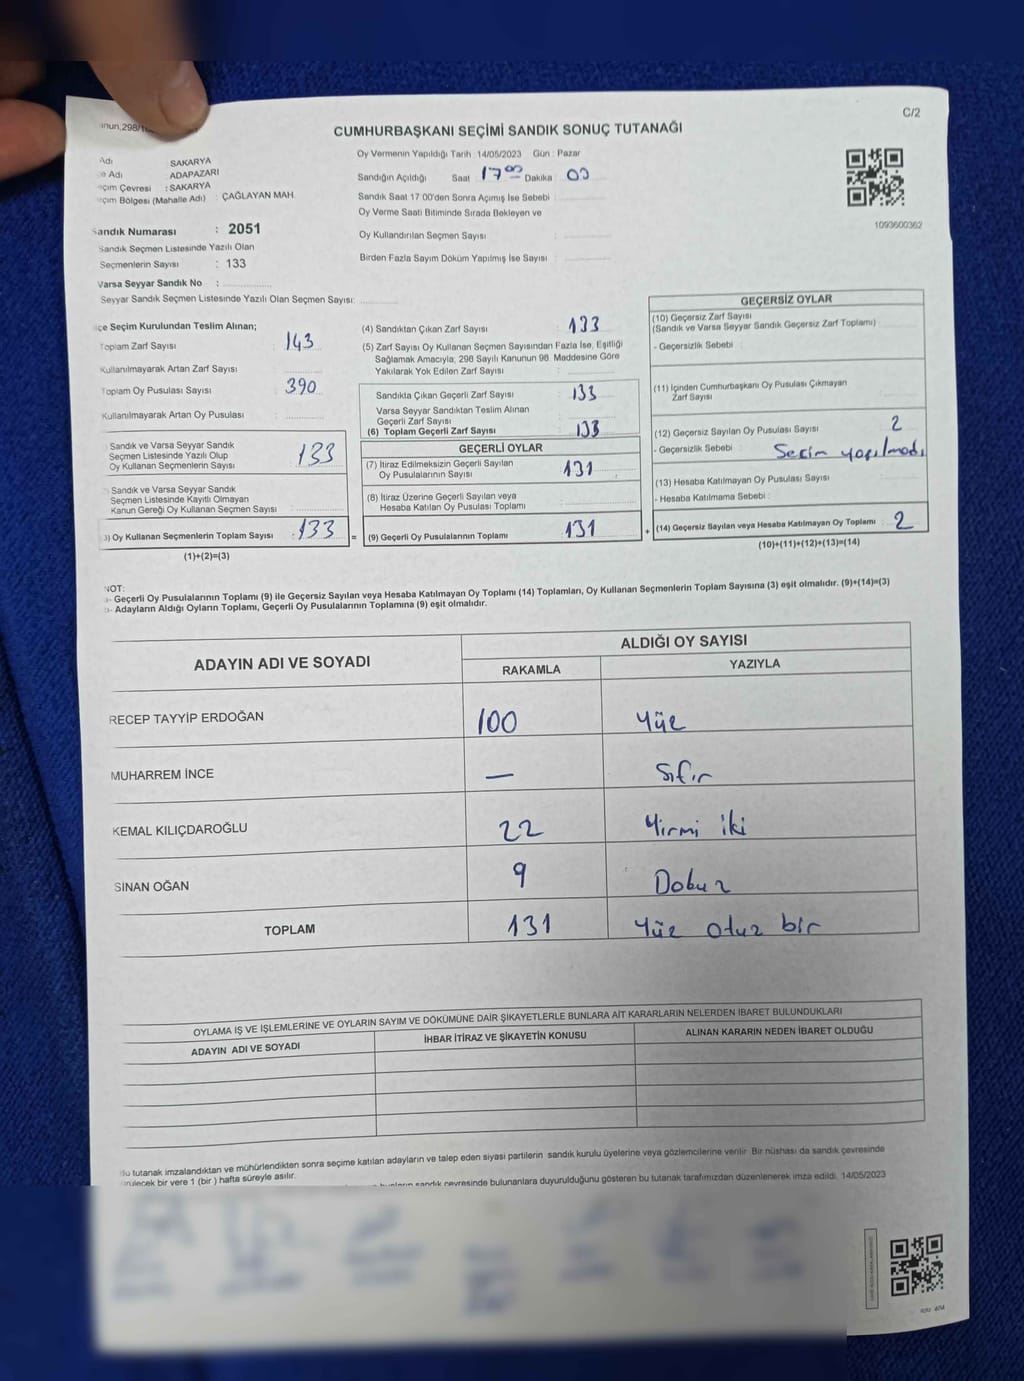 C/2
CUMHURBAŞKANI SEÇİMİ SANDIK SONUÇ TUTANAĞI
Adı SAKARYA
Adı ADAPAZARI
Çevresi : SAKARYA
Bölgesi (Mahalle Adı) : ÇAĞLAYAN MAH.
Sandık Numarası : 2051
Sandık Seçmen Listesinde Yazılı Olan
Seçmenlerin Sayısı : 133
Varsa Seyyar Sandık No :
Seyyar Sandık Seçmen Listesinde Yazılı Olan Seçmen Sayısı:
Oy Vermenin Yapıldığı Tarih 14/05/2023 Gün : Pazar
Sandığın Açıldığı Saat 17 00 Dakika 00
Sandık Saat 17 00'den Sonra Açımış İse Sebebi :
Oy Verme Saati Bitiminde Sırada Bekleyen ve
Oy Kullandırılan Seçmen Sayısı :
Birden Fazla Sayım Döküm Yapılmış İse Sayısı :
1093600362
Seçim Kurulundan Teslim Alınan;
Toplam Zarf Sayısı : 143
Kullanılmayarak Artan Zarf Sayısı :
Toplam Oy Pusulası Sayısı : 390
Kullanılmayarak Artan Oy Pusulası :
Sandık ve Varsa Seyyar Sandık
Seçmen Listesinde Yazılı Olup
Oy Kullanan Seçmenlerin Sayısı : 133
Sandık ve Varsa Seyyar Sandık
Seçmen Listesinde Kayıtlı Olmayan
Kanun Gereği Oy Kullanan Seçmen Sayısı :
3) Oy Kullanan Seçmenlerin Toplam Sayısı : 133 =
(1)+(2)=(3)
(4) Sandıktan Çıkan Zarf Sayısı : 133
(5) Zarf Sayısı Oy Kullanan Seçmen Sayısından Fazla İse, Eşitliği
Sağlamak Amacıyla, 298 Sayılı Kanunun 98. Maddesine Göre
Yakılarak Yok Edilen Zarf Sayısı :
Sandıkta Çıkan Geçerli Zarf Sayısı : 133
Varsa Seyyar Sandıktan Teslim Alınan
Geçerli Zarf Sayısı :
(6) Toplam Geçerli Zarf Sayısı : 133
GEÇERLİ OYLAR
(7) İtiraz Edilmeksizin Geçerli Sayılan
Oy Pusulalarının Sayısı : 131
(8) İtiraz Üzerine Geçerli Sayılan veya
Hesaba Katılan Oy Pusulası Toplamı :
(9) Geçerli Oy Pusulalarının Toplamı : 131 +
GEÇERSİZ OYLAR
(10) Geçersiz Zarf Sayısı
(Sandık ve Varsa Seyyar Sandık Geçersiz Zarf Toplamı)
- Geçersizlik Sebebi :
(11) İçinden Cumhurbaşkanı Oy Pusulası Çıkmayan
Zarf Sayısı :
(12) Geçersiz Sayılan Oy Pusulası Sayısı : 2
- Geçersizlik Sebebi : Seçim yapılmadı
(13) Hesaba Katılmayan Oy Pusulası Sayısı :
- Hesaba Katılmama Sebebi :
(14) Geçersiz Sayılan veya Hesaba Katılmayan Oy Toplamı : 2
(10)+(11)+(12)+(13)=(14)
NOT:
- Geçerli Oy Pusulalarının Toplamı (9) ile Geçersiz Sayılan veya Hesaba Katılmayan Oy Toplamı (14) Toplamları, Oy Kullanan Seçmenlerin Toplam Sayısına (3) eşit olmalıdır. (9)+(14)=(3)
- Adayların Aldığı Oyların Toplamı, Geçerli Oy Pusulalarının Toplamına (9) eşit olmalıdır.
ADAYIN ADI VE SOYADI ALDIĞI OY SAYISI
RAKAMLA YAZIYLA
RECEP TAYYİP ERDOĞAN 100 Yüz
MUHARREM İNCE — Sıfır
KEMAL KILIÇDAROĞLU 22 Yirmi iki
SİNAN OĞAN 9 Dokuz
TOPLAM 131 Yüz otuz bir
OYLAMA İŞ VE İŞLEMLERİNE VE OYLARIN SAYIM VE DÖKÜMÜNE DAİR ŞİKAYETLERLE BUNLARA AİT KARARLARIN NELERDEN İBARET BULUNDUKLARI
ADAYIN ADI VE SOYADI İHBAR İTİRAZ VE ŞİKAYETİN KONUSU ALINAN KARARIN NEDEN İBARET OLDUĞU
tutanak imzalandıktan ve mühürlendikten sonra seçime katılan adayların ve talep eden siyasi partilerin sandık kurulu üyelerine veya gözlemcilerine verilir. Bir nüshası da sandık çevresinde
bir yere 1 (bir) hafta süreyle asılır.
sandık çevresinde bulunanlara duyurulduğunu gösteren bu tutanak tarafımızdan düzenlenerek imza edildi. 14/05/2023